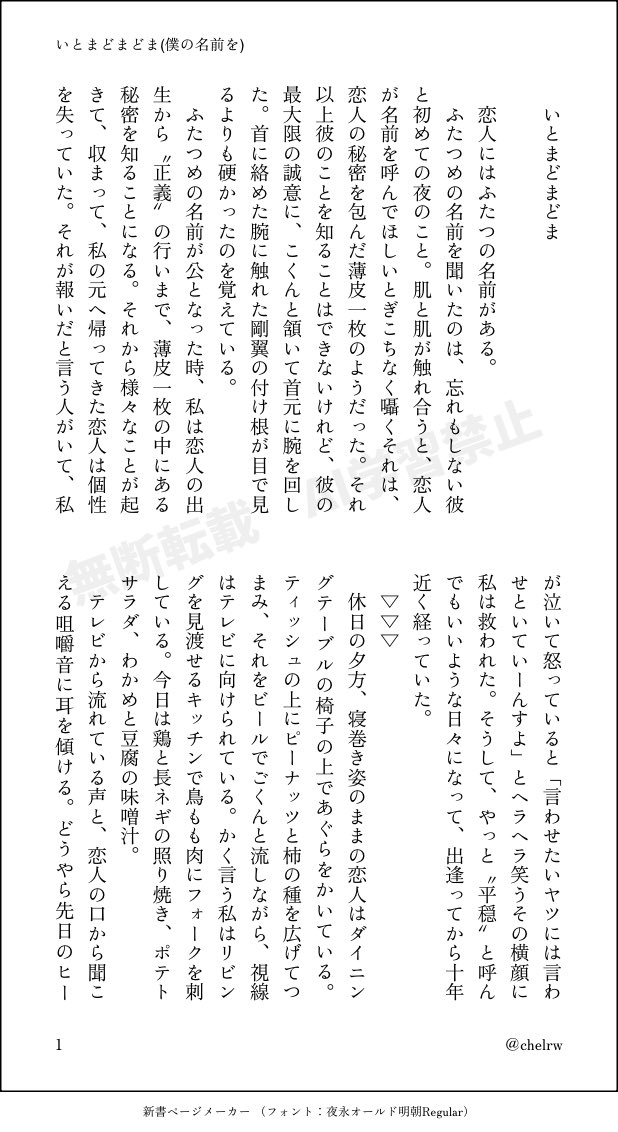 いとまどまどま(僕の名前を)
いとまどまどま
恋人にはふたつの名前がある。
ふたつめの名前を聞いたのは、忘れもしない彼
と初めての夜のこと。肌と肌が触れ合うと、恋人
が名前を呼んでほしいとぎこちなく囁くそれは、
恋人の秘密を包んだ薄皮一枚のようだった。それ
以上彼のことを知ることはできないけれど、彼の
最大限の誠意に、こくんと頷いて首元に腕を回し
た。首に絡めた腕に触れた剛翼の付け根が目で見
るよりも硬かったのを覚えている。
ふたつめの名前が公となった時、私は恋人の出
生から〝正義〟の行いまで、薄皮一枚の中にある
秘密を知ることになる。それから様々なことが起
きて、収まって、私の元へ帰ってきた恋人は個性
を失っていた。それが報いだと言う人がいて、私
が泣いて怒っていると「言わせたいヤツには言わ
せといていーんすよ」とヘラヘラ笑うその横顔に
私は救われた。そうして、やっと〝平穏〟と呼ん
でもいいような日々になって、出逢ってから十年
近く経っていた。
▽▽▽
休日の夕方、寝巻き姿のままの恋人はダイニン
グテーブルの椅子の上であぐらをかいている。
ティッシュの上にピーナッツと柿の種を広げてつ
まみ、それをビールでごくんと流しながら、視線
はテレビに向けられている。かく言う私はリビン
グを見渡せるキッチンで鳥もも肉にフォークを刺
している。今日は鶏と長ネギの照り焼き、ポテト
サラダ、わかめと豆腐の味噌汁。
テレビから流れている声と、恋人の口から聞こ
える咀嚼音に耳を傾ける。どうやら先日のヒー
無断転載 AI学習禁止
1
@chelrw
新書ページメーカー （フォント：夜永オールド明朝Regular）